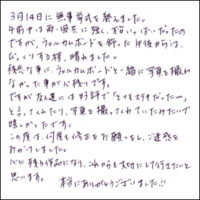 3月14日に無事挙式を終えました。
午前中は雨・風共に強く、不安いっぱいだったの
ですが、ウェルカムボードを飾った午後からは、
びっくりする程、晴れました。
残念な事に、ウェルカムボードと一緒に写真を撮れ
なかった事が心残りです。
ですが友人達には好評で「とてもステキだった〜」
と言ってくれたり、写真を撮ってくれていたみたいで
嬉しかったです。
この度は、何度も修正をお願いをし、ご迷惑を
おかけしました。
心に残る作品になり、これからも大切にして行きたいと
思います。
本当にありがとうございました!!